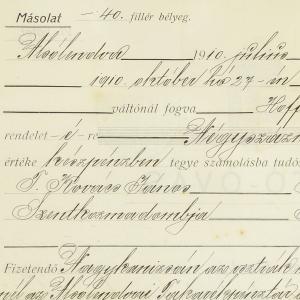 Másolat -40. fillér bélyeg.
Alsólendva 1910. julius
1910. október hó 27-én
váltónál fogva Hoff
rendelet -é- re Négyszáz
értéke készpénzben tegye számolásba tudó
T. Kovács János
Szentkozmadombja
Fizetendő Nagykanizsán az osztrák
nél az Alsólendvai Takarékpénztár